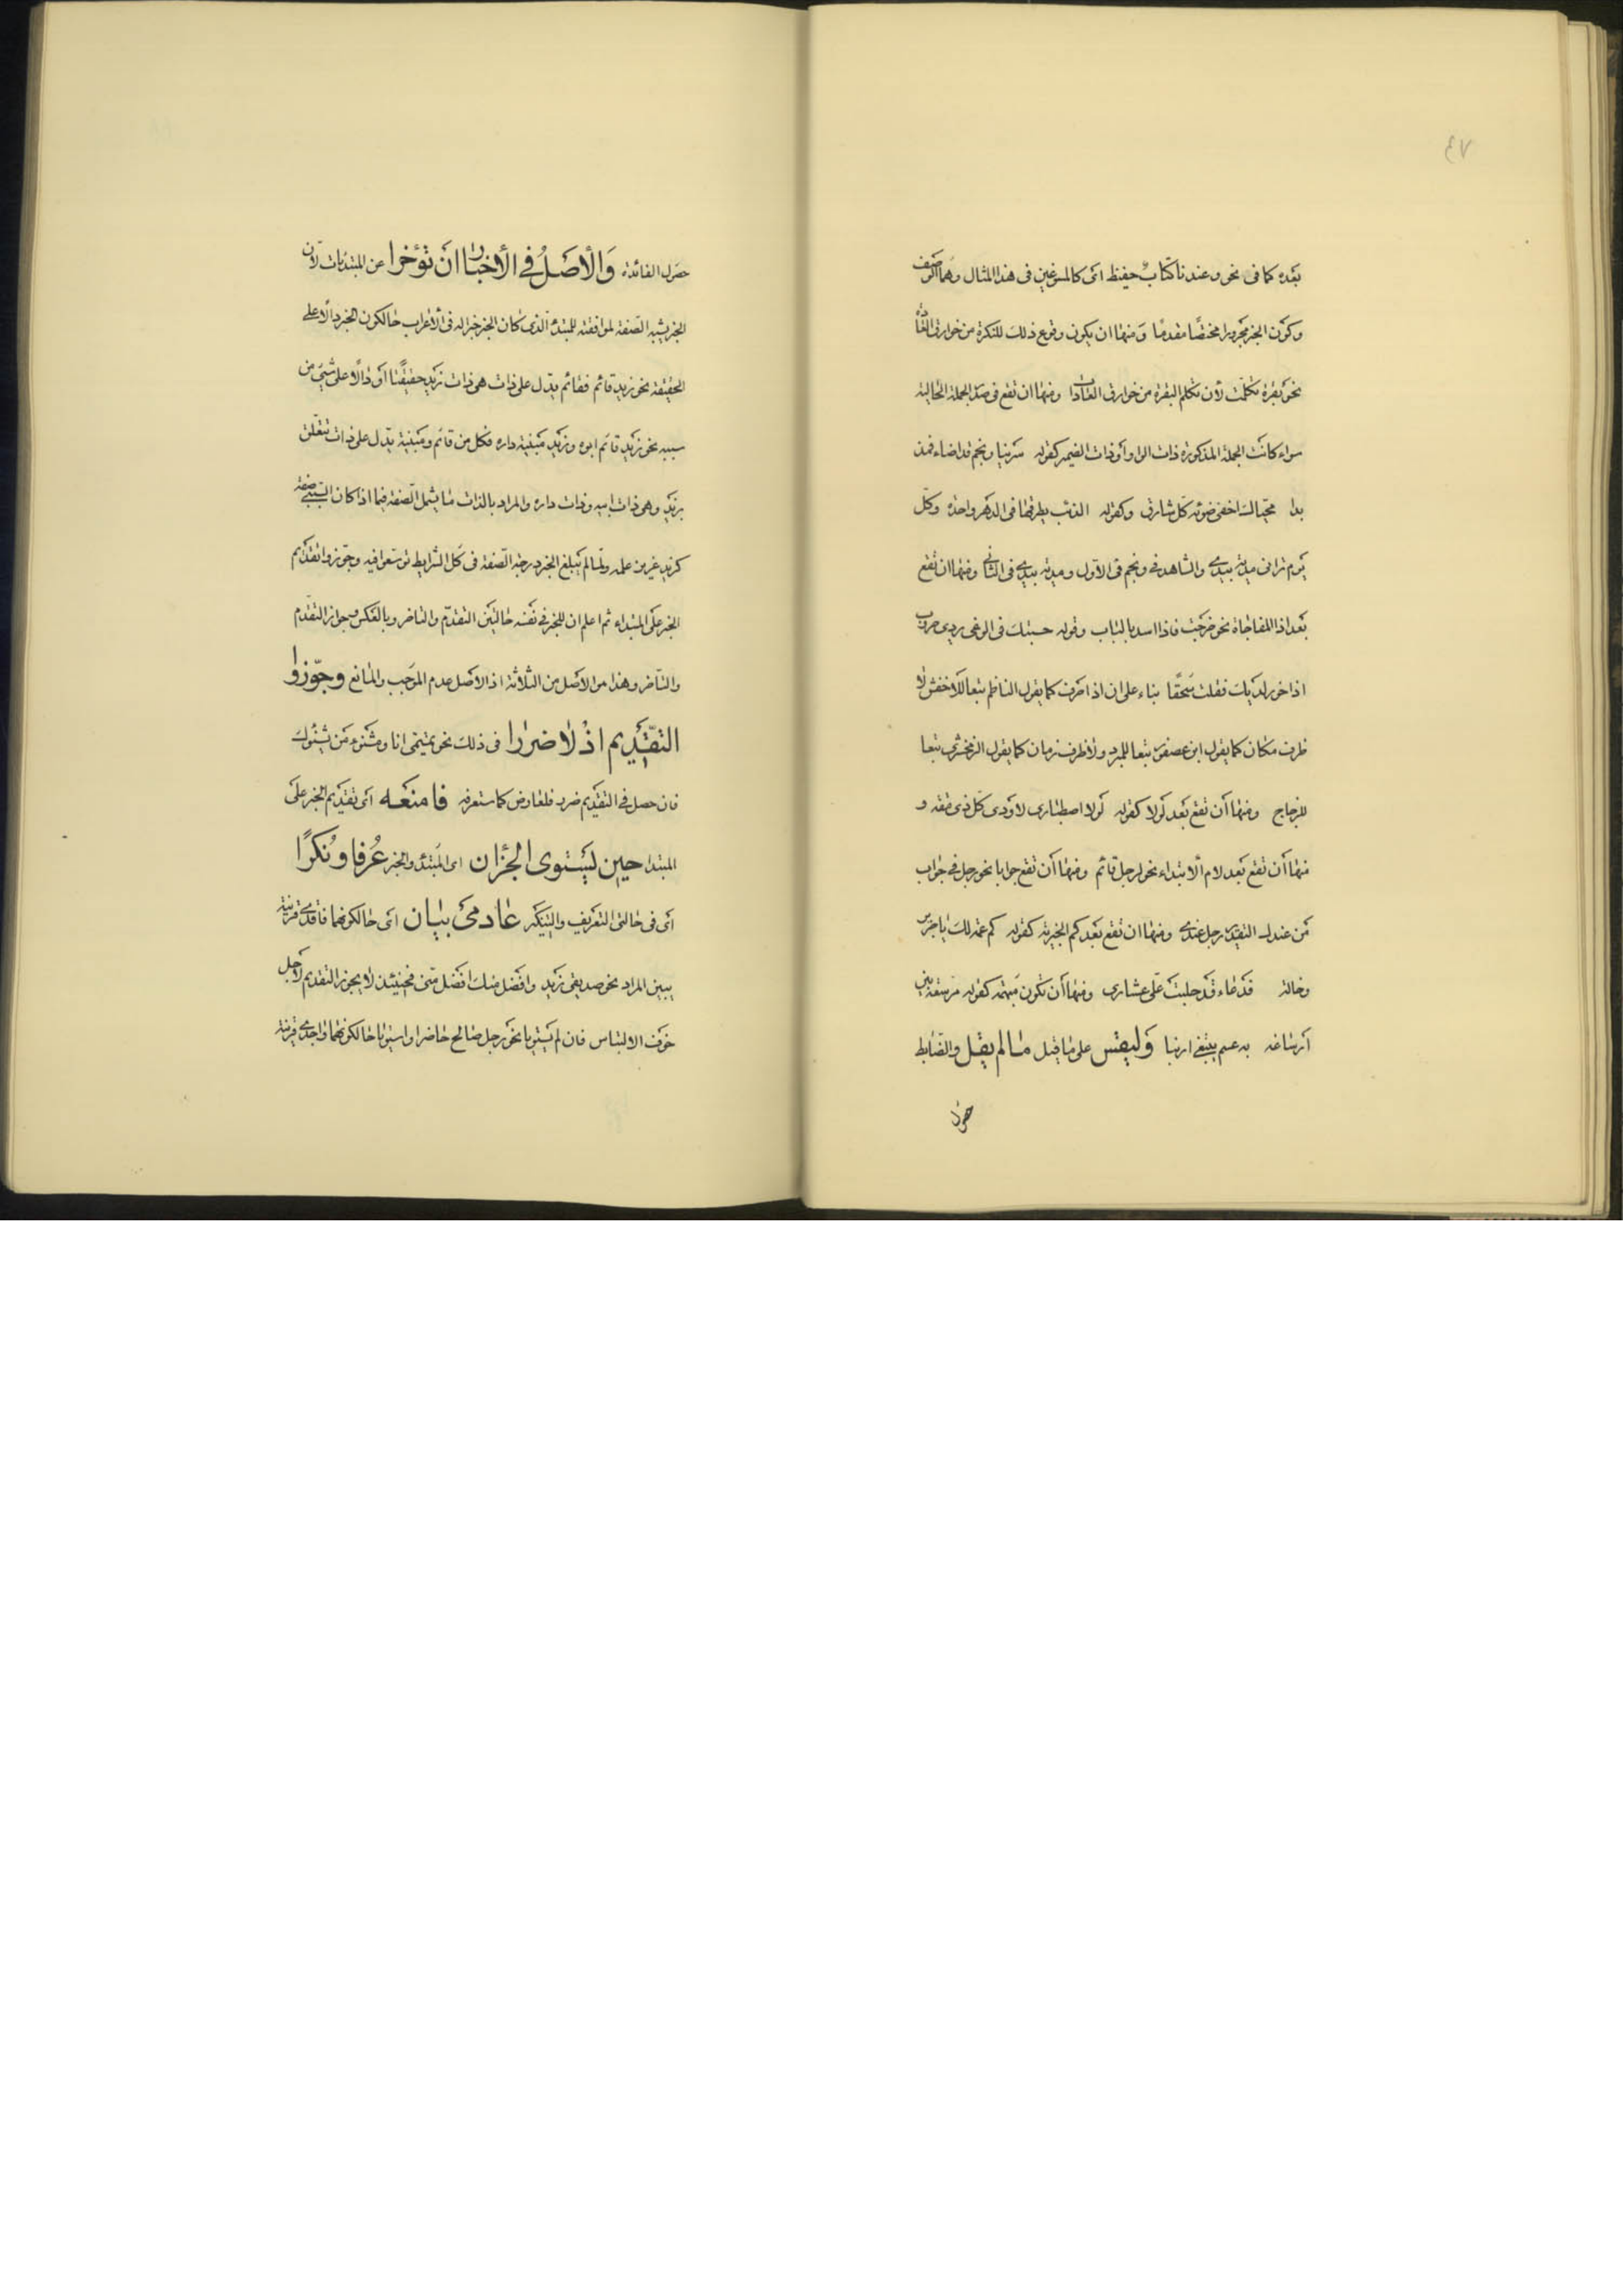 ٤٧
بعده كما فى نحو وعندنا كتاب حفيظ اى كالمسوغين فى هذا المثال وهما الوصف
وكون الخبر مجرورا مختصا مقدما ومنها ان يكون وقوع ذلك للنكرة من خوارق العادات
نحو بقرة تكلمت لأن تكلم البقرة من خوارق العادات ومنها ان تقع فى صدر الجملة الحالية
سواء كانت الجملة المذكورة ذات الواو او ذات الضمير كقوله سرينا ونجم قد اضاء فمذ
بدا محياك اخفى ضوئه كل شارق وكقوله الذئب يطرقها فى الدهر واحدة وكل
يوم ترانى مدية بيدى والشاهد فى ونجم فى الاول ومدية بيدى فى الثانى ومنها ان تقع
بعد اذا المفاجاة نحو خرجت فاذا اسد بالباب وقوله حسبتك فى الوغى
اذا خور لديك فقلت سحقا بناء على ان اذا حرف كما يقول الناظم تبعا للاخفش لا
ظرف مكان كما يقول ابن عصفور تبعا للمبرد ولا ظرف زمان كما يقول الزمخشرى تبعا
للزجاج ومنها أن تقع بعد لولا كقوله لولا اصطبارى لاودى كل ذى مقة و
منها أن تقع بعد لام ألابتداء نحو لرجل قائم ومنها أن تقع جوابا نحو رجل فى جواب
من عندك التقدير رجل عندى ومنها ان تقع بعد كم الخبرية كقوله كم عمة لك يا جرير
وخالة فدعاء قد حلبت على عشارى ومنها أن تكون مبهمة كقوله مرسعة بين
ارساغه به عسم يبتغى ارنبا وليقس على ما قيل ما لم يقل والضابط
حصول
حصول الفائدة والأصل في الأخبار ان تؤخرا عن المبتدئات لأن
الخبر يشبه الصفة لموافقته للمبتدء الذى كان الخبر خبرا له فى الأعراب حالكون الخبر دالا على
الحقيقة نحو زيد قائم فقائم يدل على ذات هى ذات زيد حقيقتا او دالا على شيئ من
سببه نحو زيد قائم ابوه وزيد مبنية داره فكل من قائم ومبنية يدل على ذات تتعلق
بزيد وهى ذات ابيه وذات داره والمراد بالذات ما يشمل الصفة فيما اذا كان السببى صفة
كزيد غزير علمه ولما لم يبلغ الخبر درجة الصفة فى كل الشرايط توسعوا فيه وجوزوا تقديم
الخبر على المبتداء ثم اعلم ان للخبر فى نفسه حالتين التقدم والتاخر وبالعكس وجواز التقدم
والتاخر وهذا هو الاصل من الثلاثة اذ الاصل عدم الموجب والمانع وجوزوا
التقديم اذ لا ضررا فى ذلك نحو تميمى انا ومشنوء من يشنؤك
فان حصل فى التقديم ضرر فلعارض كما ستعرفه فامنعه اى تقديم الخبر على
المبتدا حين يستوى الجزان اى المبتدء والخبر عرفا ونكرا
اى فى حالتى التعريف والتنكير عادمى بيان اى حالكونهما فاقدى قرينة
يبين المراد نحو صديقى زيد وافضل منك افضل منى فحينئذ لا يجوز التقديم لاجل
خوف الالتباس فان لم يستويا نحو رجل صالح حاضر او استويا حالكونهما واجدى قرينة